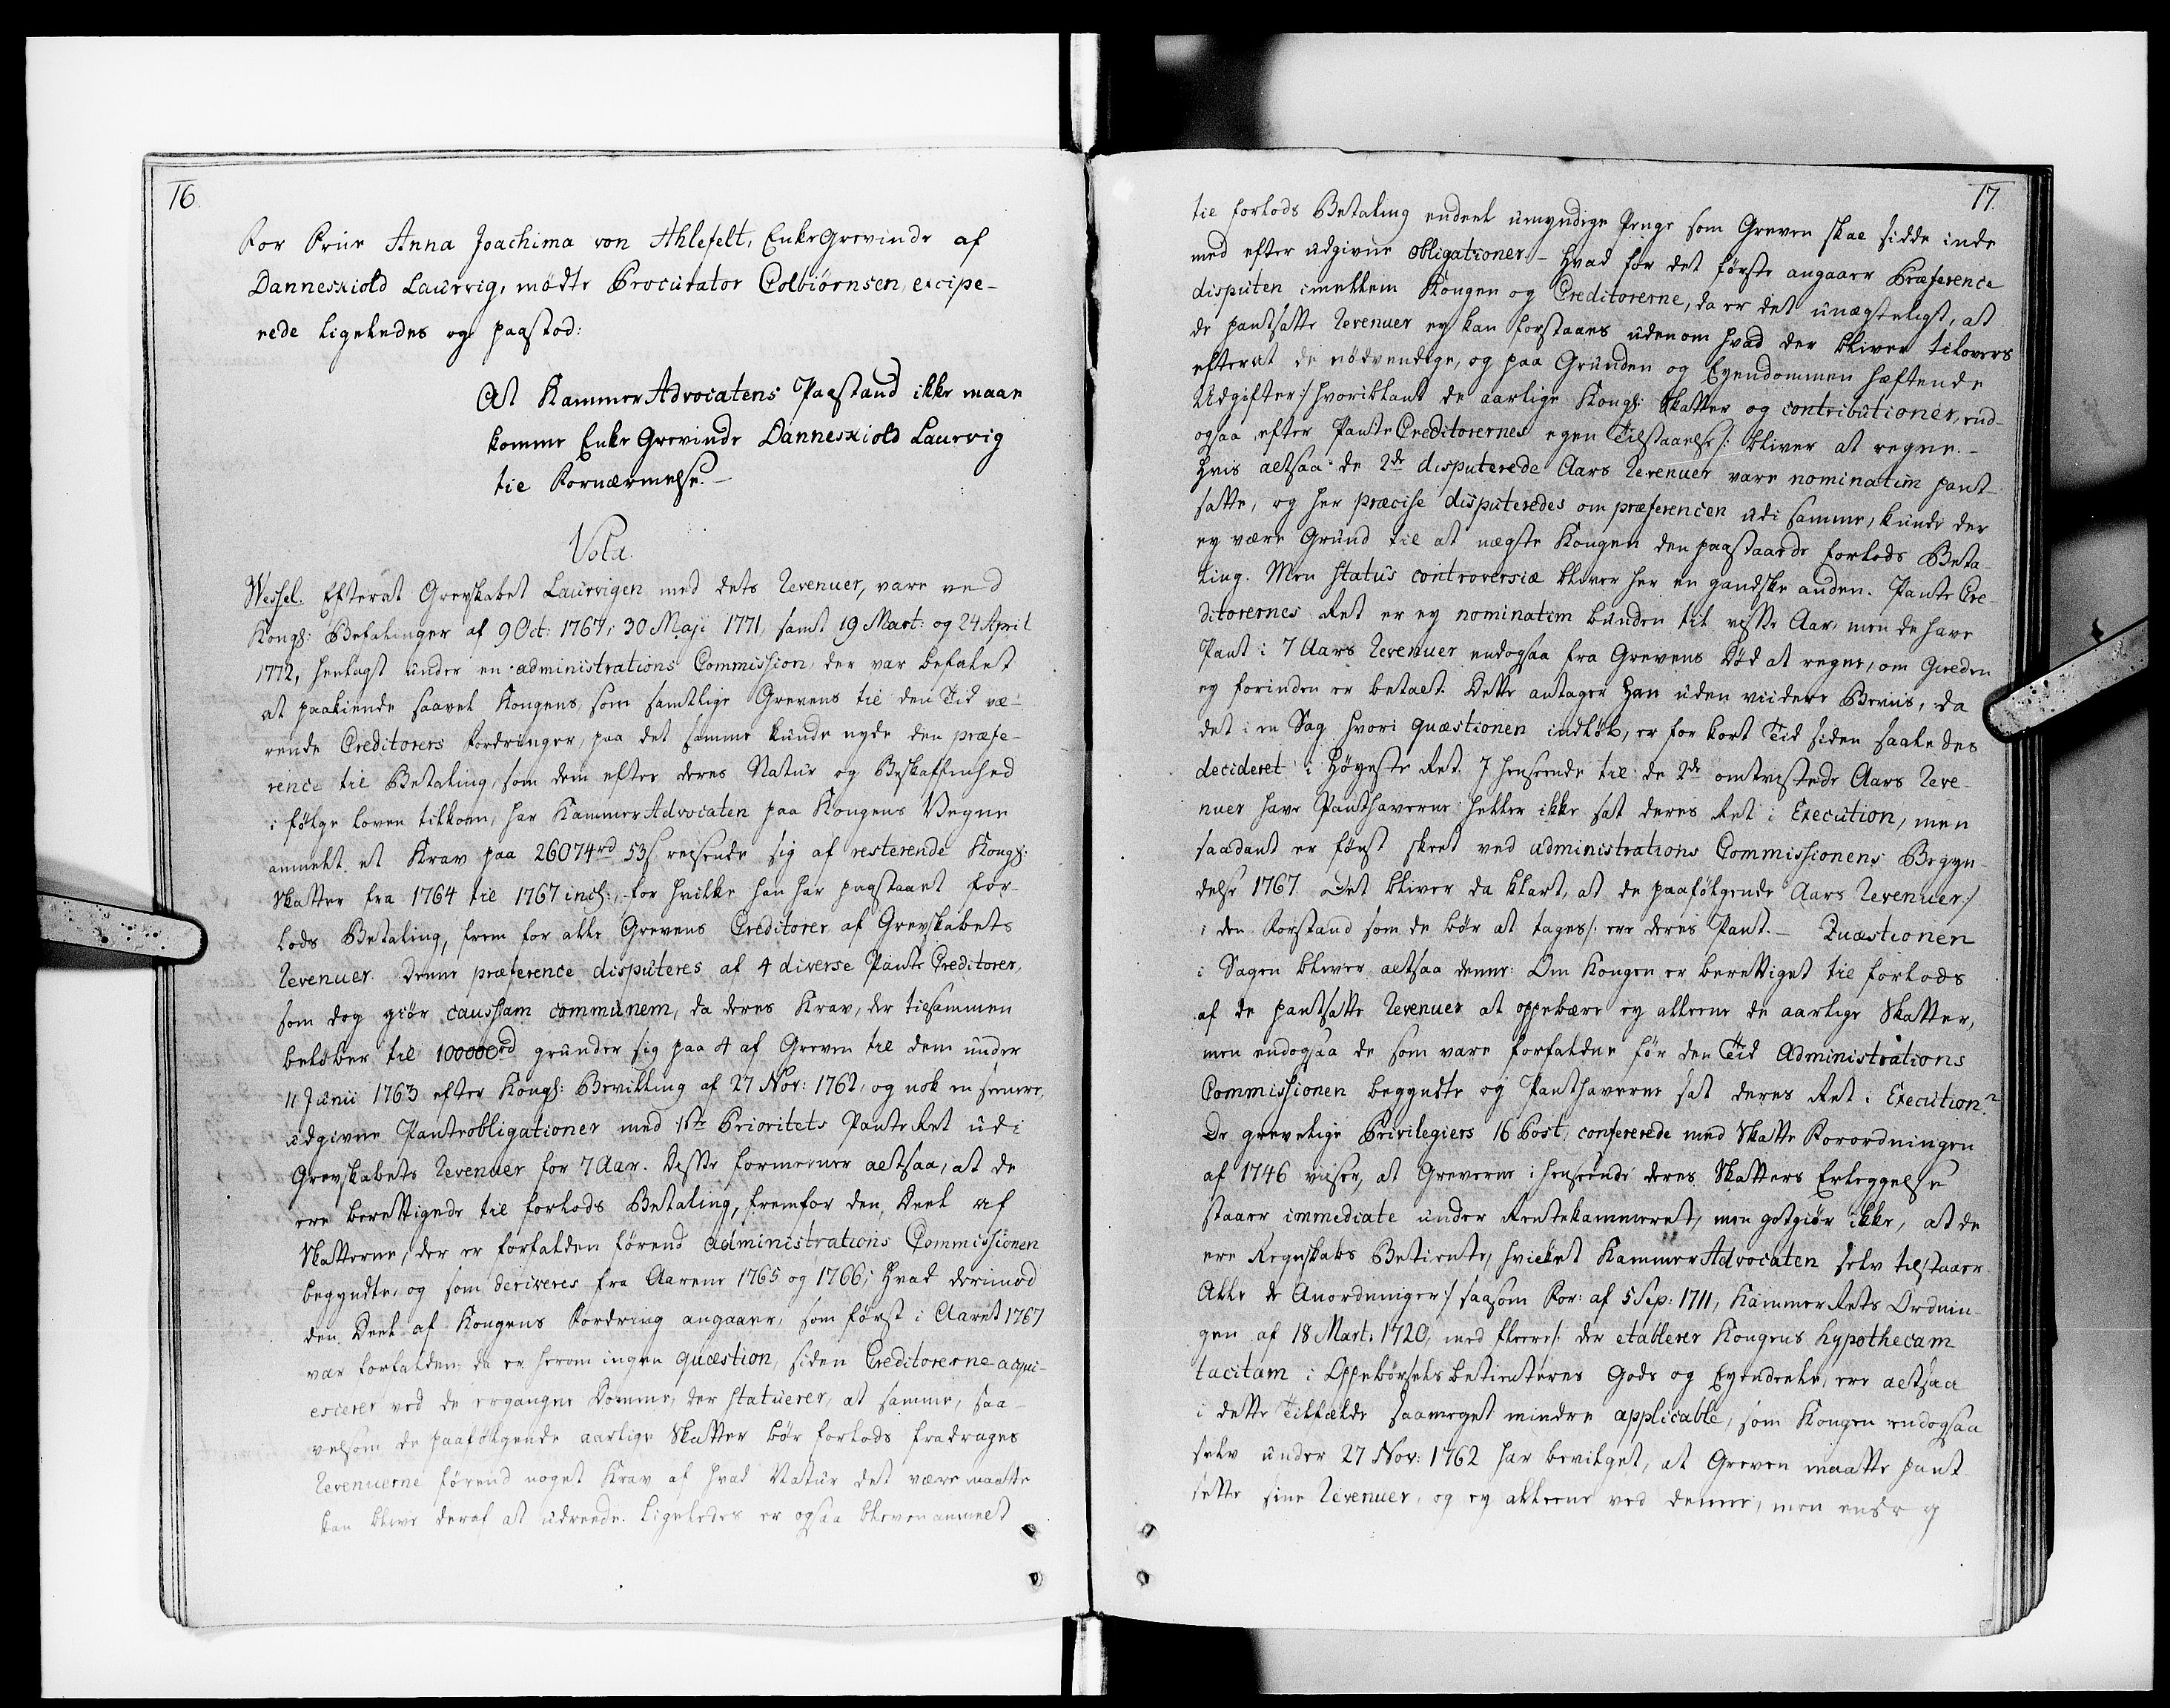 16.
For Frue Anna Joachima von Ahlefelt, EnkeGrevinde af
Danneskiold Laurvig, mødte Procurator Colbiørnsen, excipe-
rede ligeledes og paastod:
At KammerAdvocatens Paastand ikke maae
komme EnkeGrevinde Danneskiold Laurvig
til Fornærmelse.-
Vota.
Wessel. Efterat Grevskabet Laurvigen med dets Revenuer, vare ved
Kongl: Befalinger af 9 Oct: 1767, 30 Maji 1771, samt 19 Mart: og 24 April
1772, henlagt under en administrations Commission, der var befalet
at paakiende saavel Kongens, som samtlige Grevens til den Tid væ-
rende Creditorers Fordringer, paa det samme kunde nyde den præfe-
rence til Betaling, som dem efter deres Natur og Beskaffenhed
i følge loven tilkom, har KammerAdvocaten paa Kongens Vegne
anmeldt et Krav paa 26074rd 53ẞ reisende sig af resterende Kongl:
Skatter fra 1764 til 1767 incl:, for hvilke han har paastaaet for-
lods Betaling, frem for alle Grevens Creditorer af Grevskabets
Revenuer. Denne præference disputeres af 4 diverse PanteCreditorer,
som dog giør caussam communem, da deres Krav, der tilsammen
beløber til 100000rd grunder sig paa 4 af Greven til dem under
11 Junii 1763 efter Kongl: Bevilling af 27 Nov: 1762, og nok en senere,
udgivne Panteobligationer med 1ste Prioritets PanteRet udi
Grevskabets Revenuer for 7 Aar. Disse formeener altsaa, at de
ere berettigede til forlods Betaling, fremfor den Deel af
Skatterne, der er forfalden førend administrations Commissionen
begyndte, og som deriveres fra Aarene 1765 og 1766; Hvad derimod
den Deel af Kongens Fordring angaaer, som først i Aaret 1767
var forfalden, da er herom ingen quæstion, siden Creditorerne acqvi-
escerer ved de ergangne Domme, der statuerer, at samme, saa-
velsom de paafølgende aarlige Skatter bør forlods fradrages
Revenuerne førend noget Krav af hvad Natur det være maatte
kan blive deraf at udreede. Ligeledes er ogsaa bleven anmeldt
17.
til forlods Betaling endeel umyndige Penge som Greven skal sidde inde
med efter udgivne obligationer. - Hvad for det første angaaer Præference
disputen imellem Kongen og Creditorerne, da er det unægteligt, at
de pantsatte Revenuer ey kan forstaaes udenom hvad der bliver tilovers
efterat de nødvendige, og paa Grunden og Eyendommen hæftende
Udgifter /: hvoriblant de aarlige Kongl: Skatter og contributioner, end-
ogsaa efter PanteCreditorernes egen Tilstaaelse :/ bliver at regne. -
Hvis altsaa de 2de disputerede Aars Revenuer vare nominatim pant-
satte, og her præcise disputeredes om præferencen udi samme, kunde der
ey være Grund til at nægte Kongen den paastaaede forlods Beta-
ling. Men status controversiæ bliver her en gandske anden. PanteCre-
ditorernes Ret er ey nominatim bunden til visse Aar, men de have
Pant i 7 Aars Revenuer endogsaa fra Grevens Død at regne, om Gielden
ey forinden er betalt. Dette antager han uden viidere Beviis, da
det i en Sag hvori quæstionen indløb, er for kort Tid siden saaledes
decideret i Høyeste Ret. I henseende til de 2de omtvistede Aars Reve-
nuer have Panthaverne heller ikke sat deres Ret i Execution, men
saadant er først skeet ved administrations Commissionens Begyn-
delse 1767. Det bliver da klart, at de paafølgende Aars Revenuer /:
i den Forstand som de bør at tages :/ ere deres Pant. - Quæstionen
i Sagen bliver altsaa denne: Om Kongen er berettiget til forlods
af de pantsatte Revenuer at oppebære ey alleene de aarlige Skatter,
men endogsaa de som vare forfaldne før den Tid Administrations
Commissionen begyndte og Panthaverne sat deres Ret i Execution?
De grevelige Privilegiers 16 Post, confererede med Skatte Forordningen
af 1746 viiser, at Greverne i henseende deres Skatters Erleggelse
staaer immediate under Rentekammeret, men gotgiør ikke, at de
ere Regnskabs Betiente, hvilket KammerAdvocaten selv tilstaaer.
Alle de Anordninger /: saasom For: af 5 Sep: 1711, KammerRets Ordnin-
gen af 18 Mart: 1720, med fleere :/ der etablerer Kongens hypothecam
tacitam i Oppebørsels betienteres Gods og Eyendeele, ere altsaa
i dette Tilfælde saameget mindre applicable, som Kongen endogsaa
selv under 27 Nov: 1762 har bevilget, at Greven maatte pant-
sette sine Revenuer, og ey alleene ved denne, men endog